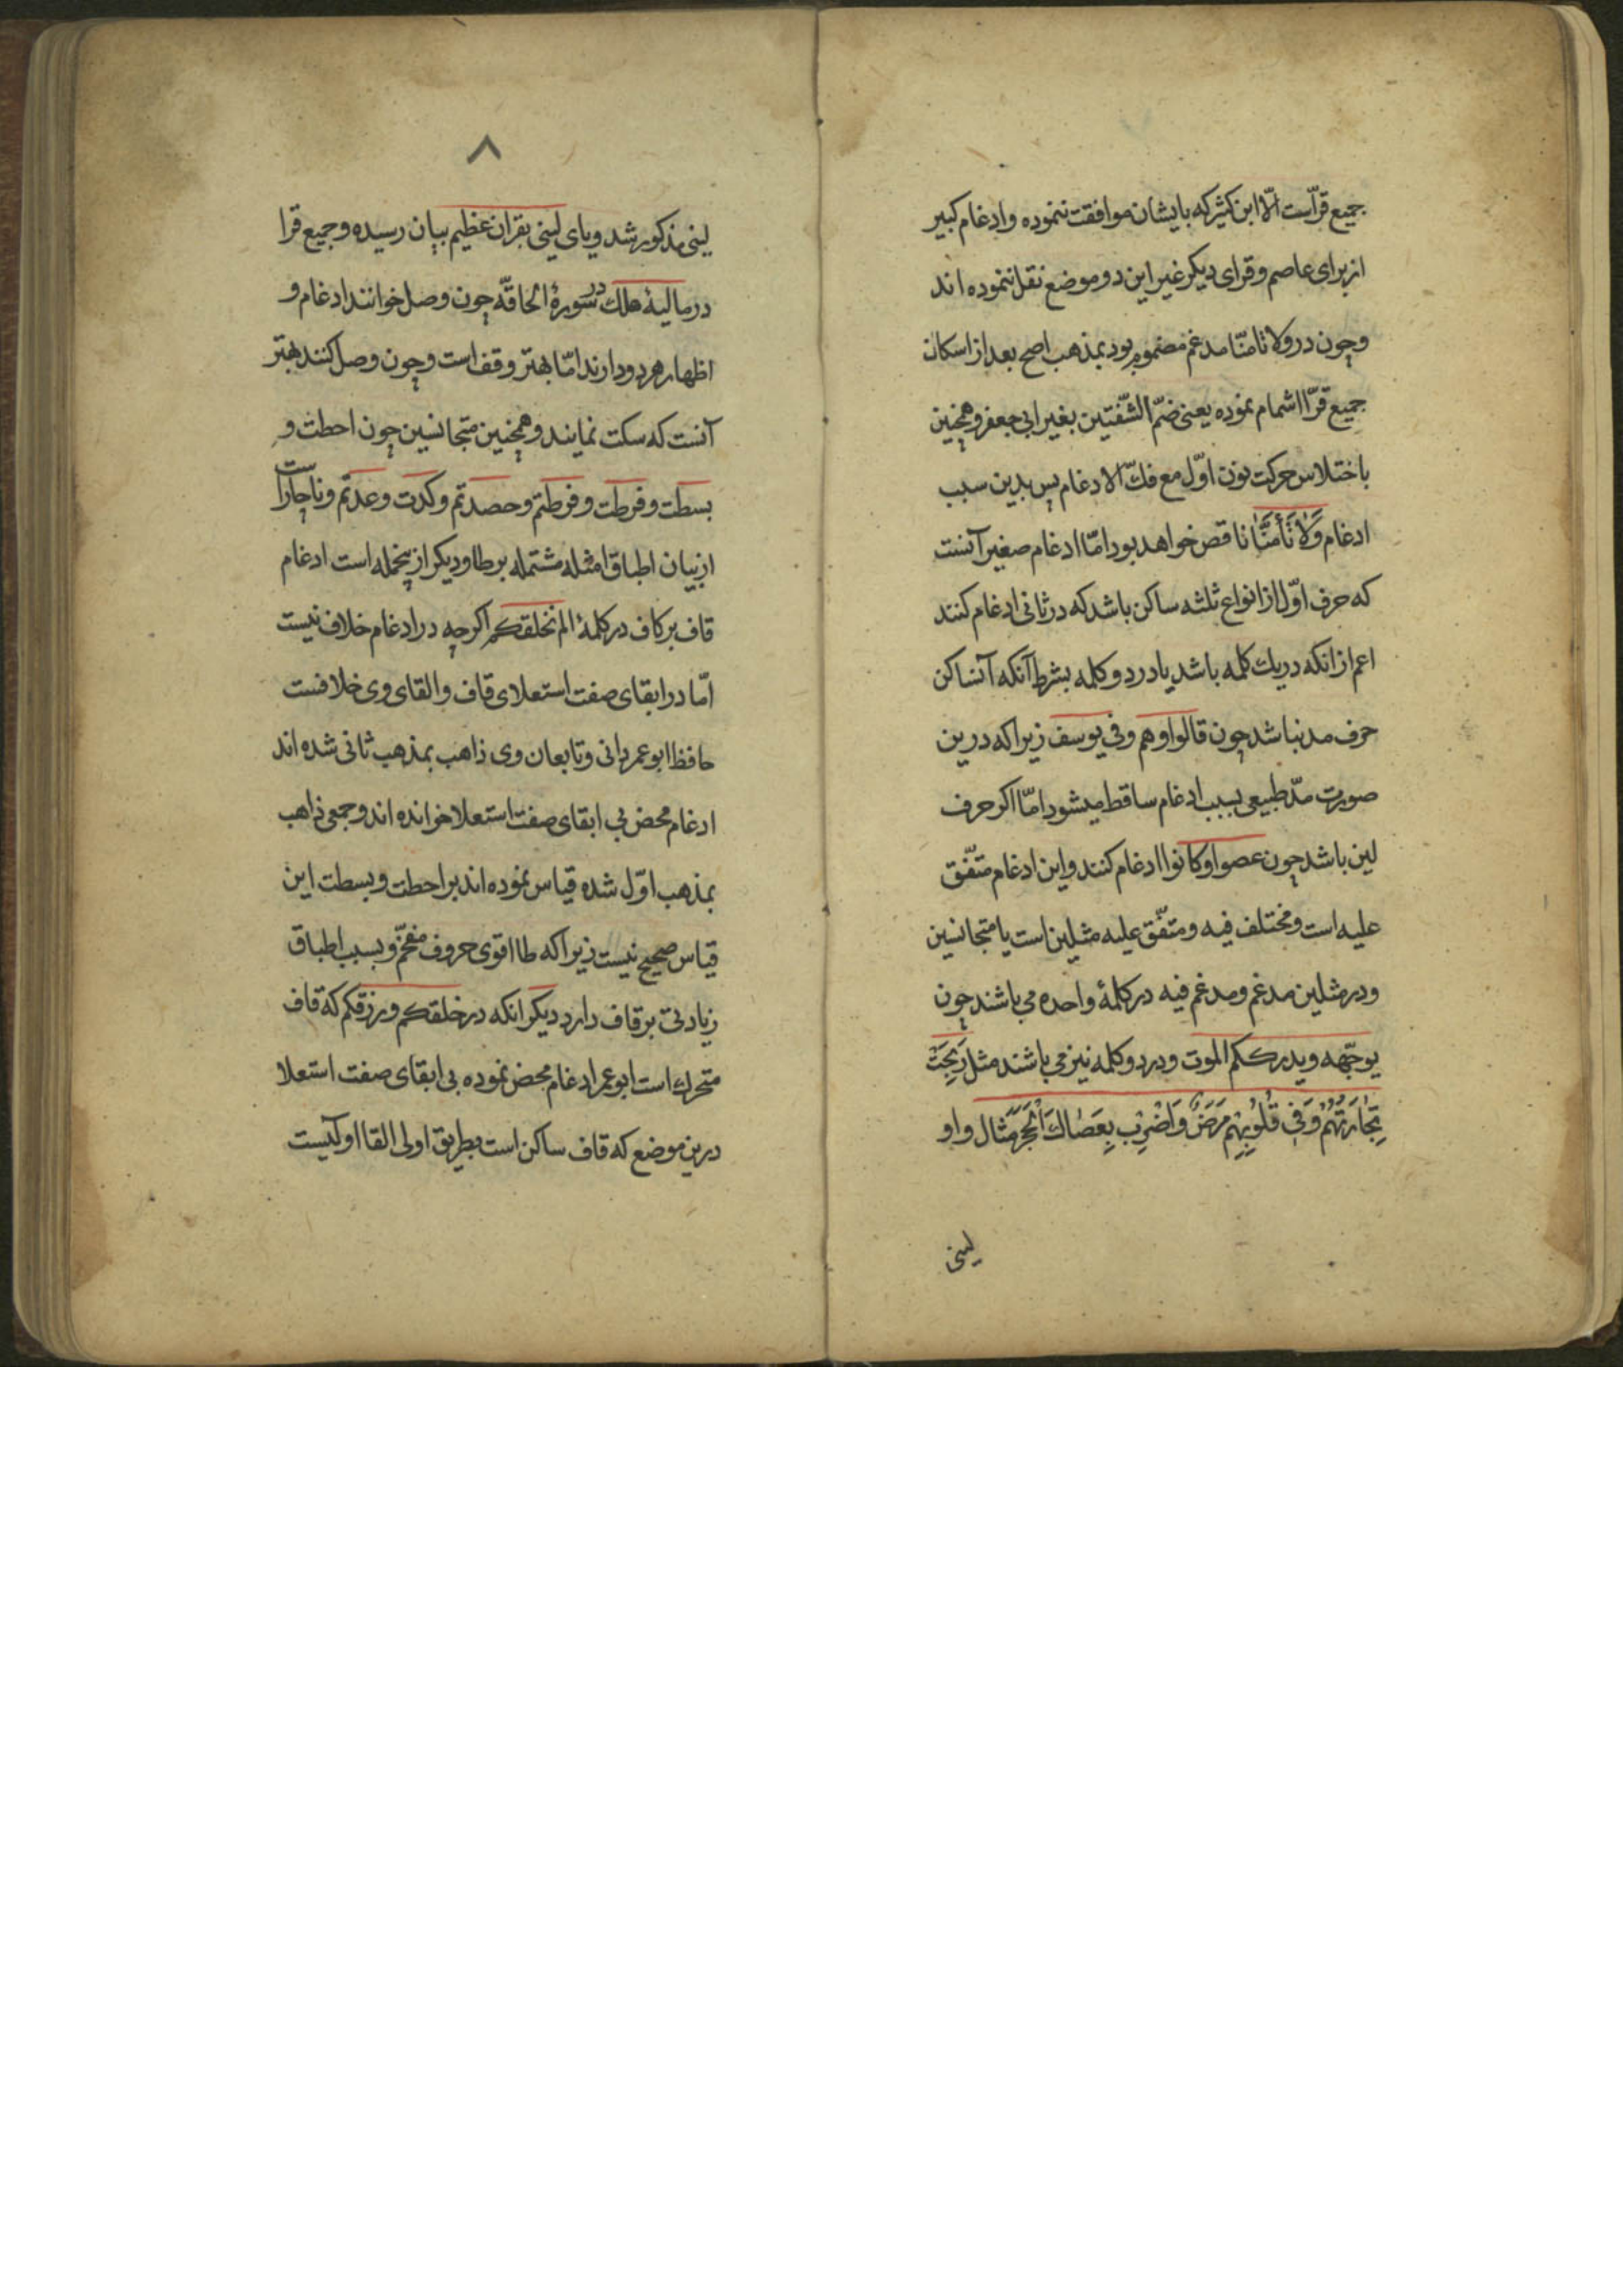 جمیع قرّاست الّا ابن کثیر که بایشان موافقت ننموده وادغام کبیر
از برای عاصم وقرای دیکر غیر این دو موضع نقل ننموده اند
وچون در ولا تامنّا مدغم مضموم بود بمذهب اصح بعد از اسکان
جمیع قرّا اشمام نموده یعنی ضمّ الشّفتین بغیر ابی جعفر وهمچنین
باختلاس حرکت نون اوّل مع فكّ الادغام پس بدین سبب
ادغام وَلَا تَأْمَنَّا ناقص خواهد بود امّا ادغام صغیر آنست
که حرف اوّل از انواع ثلثه ساکن باشد که در ثانی ادغام کنند
اعم از انکه دریك کلمه باشد یا در دو کلمه بشرط آنکه آن ساکن
حرف مد نباشد چون قالوا وهم وفی یوسف زیرا که درین
صورت مدّ طبیعی بسبب ادغام ساقط میشود امّا اکر حرف
لین باشد چون عصوا وکانوا ادغام کنند واین ادغام متّفق
علیه است ومختلف فیه ومتفّق علیه مثلین است یا متجانسین
ودر مثلین مدغم ومدغم فیه در کلمهٔ واحده می باشند چون
یوجّهه ویدرککم الموت ودر دو کلمه نیز می باشند مثل رَبِحَتْ
تِجَارَتُهُمْ وَفِی قُلُوبِهِمْ مَرَضٌ وَاضْرِبْ بِعَصَاكَ الْحَجَرَ مثال واو
لینی
۸
لینی مذکور شد ویای لینی بقران عظیم بیان رسیده وجمیع قرا
در مالیهٔ هلك در سورهٔ الحاقّه چون وصل خوانند ادغام و
اظهار هر دو دارند امّا بهتر وقف است وچون وصل کنند بهتر
آنست که سکت نمایند وهمچنین متجانسین چون احطت و
بسطت وفرطت وفرطتم وحصدتم وکدت وعدتم وناچار است
از بیان اطباق امثله مشتمله بر طا ودیکر ازینجمله است ادغام
قاف بر کاف در کلمهٔ الم نخلقکم اکرچه در ادغام خلاف نیست
امّا در ابقای صفت استعلای قاف والقای وی خلافست
حافظ ابوعمر دانی وتابعان وی ذاهب بمذهب ثانی شده اند
ادغام محض بی ابقای صفت استعلا خوانده اند وجمعی ذاهب
بمذهب اوّل شده قیاس نموده اند بر احطت وبسطت این
قیاس صحیح نیست زیرا که طا اقوی حروف مفخّم وبسبب اطباق
زیادتی بر قاف دارد دیکر انکه در خلقکم ورزقکم که قاف
متحرك است ابوعمر ادغام محض نموده بی ابقای صفت استعلا
درین موضع که قاف ساکن است بطریق اولی القا اولیست